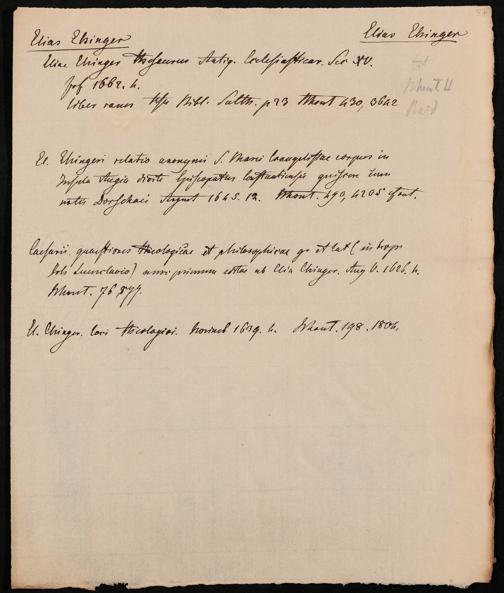 Elias Ehinger
Elias Ehinger
Eliae Ehinger Thesaurus Antiq. Ecclesiasticar. Sec XV.
frf 1662. 4.
liber rarus Bibl. Salth. p 23 Mhout 430, 3642
El. Ehingeri relatio anonymi S. Marci Evangelistae corpus in
Insula Augia divite Episcopatus Constantiensis
Dorschaei August 1645. 12. Mhout. 490, 4205
Caesarii quaestiones theologicae et philosophicae gr et lat (interpr
Leunclavio) nunc primum editae ab Elia Ehinger. Aug V. 1626. 4.
Mhout. 76, 899.
El. Ehinger. loci theologici. 1639. 4. Mhout. 198. 1804.